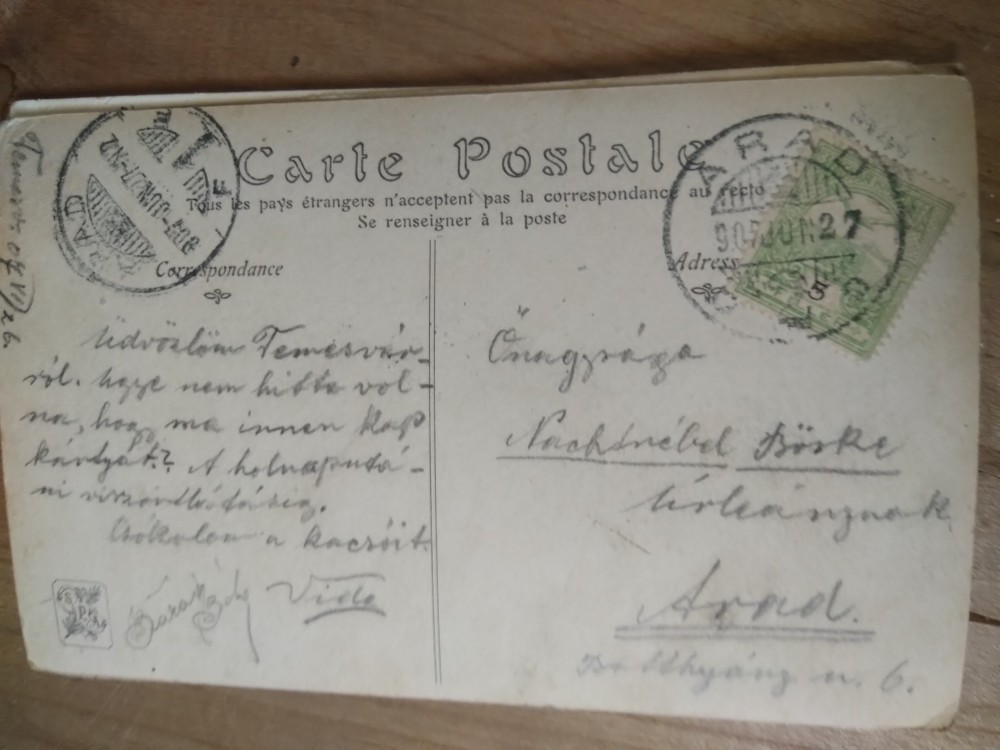 Carte Postale
Tous les pays étrangers n'acceptent pas la correspondance au recto
Se renseigner à la poste
Correspondance
Adresse
ARAD
907 JUN 27
Temesvár, 07 VI/26.
Üdvözlöm Temesvár-
ról. Ugye nem hitte vol-
na, hogy ma innen kap
kártyát? A holnaputá-
ni viszontlátásig.
Csókolom a kacsóit
Vida
Őnagysága
Nachtnébel Böske
Úrleánynak
Arad.
Batthyány u. 6.